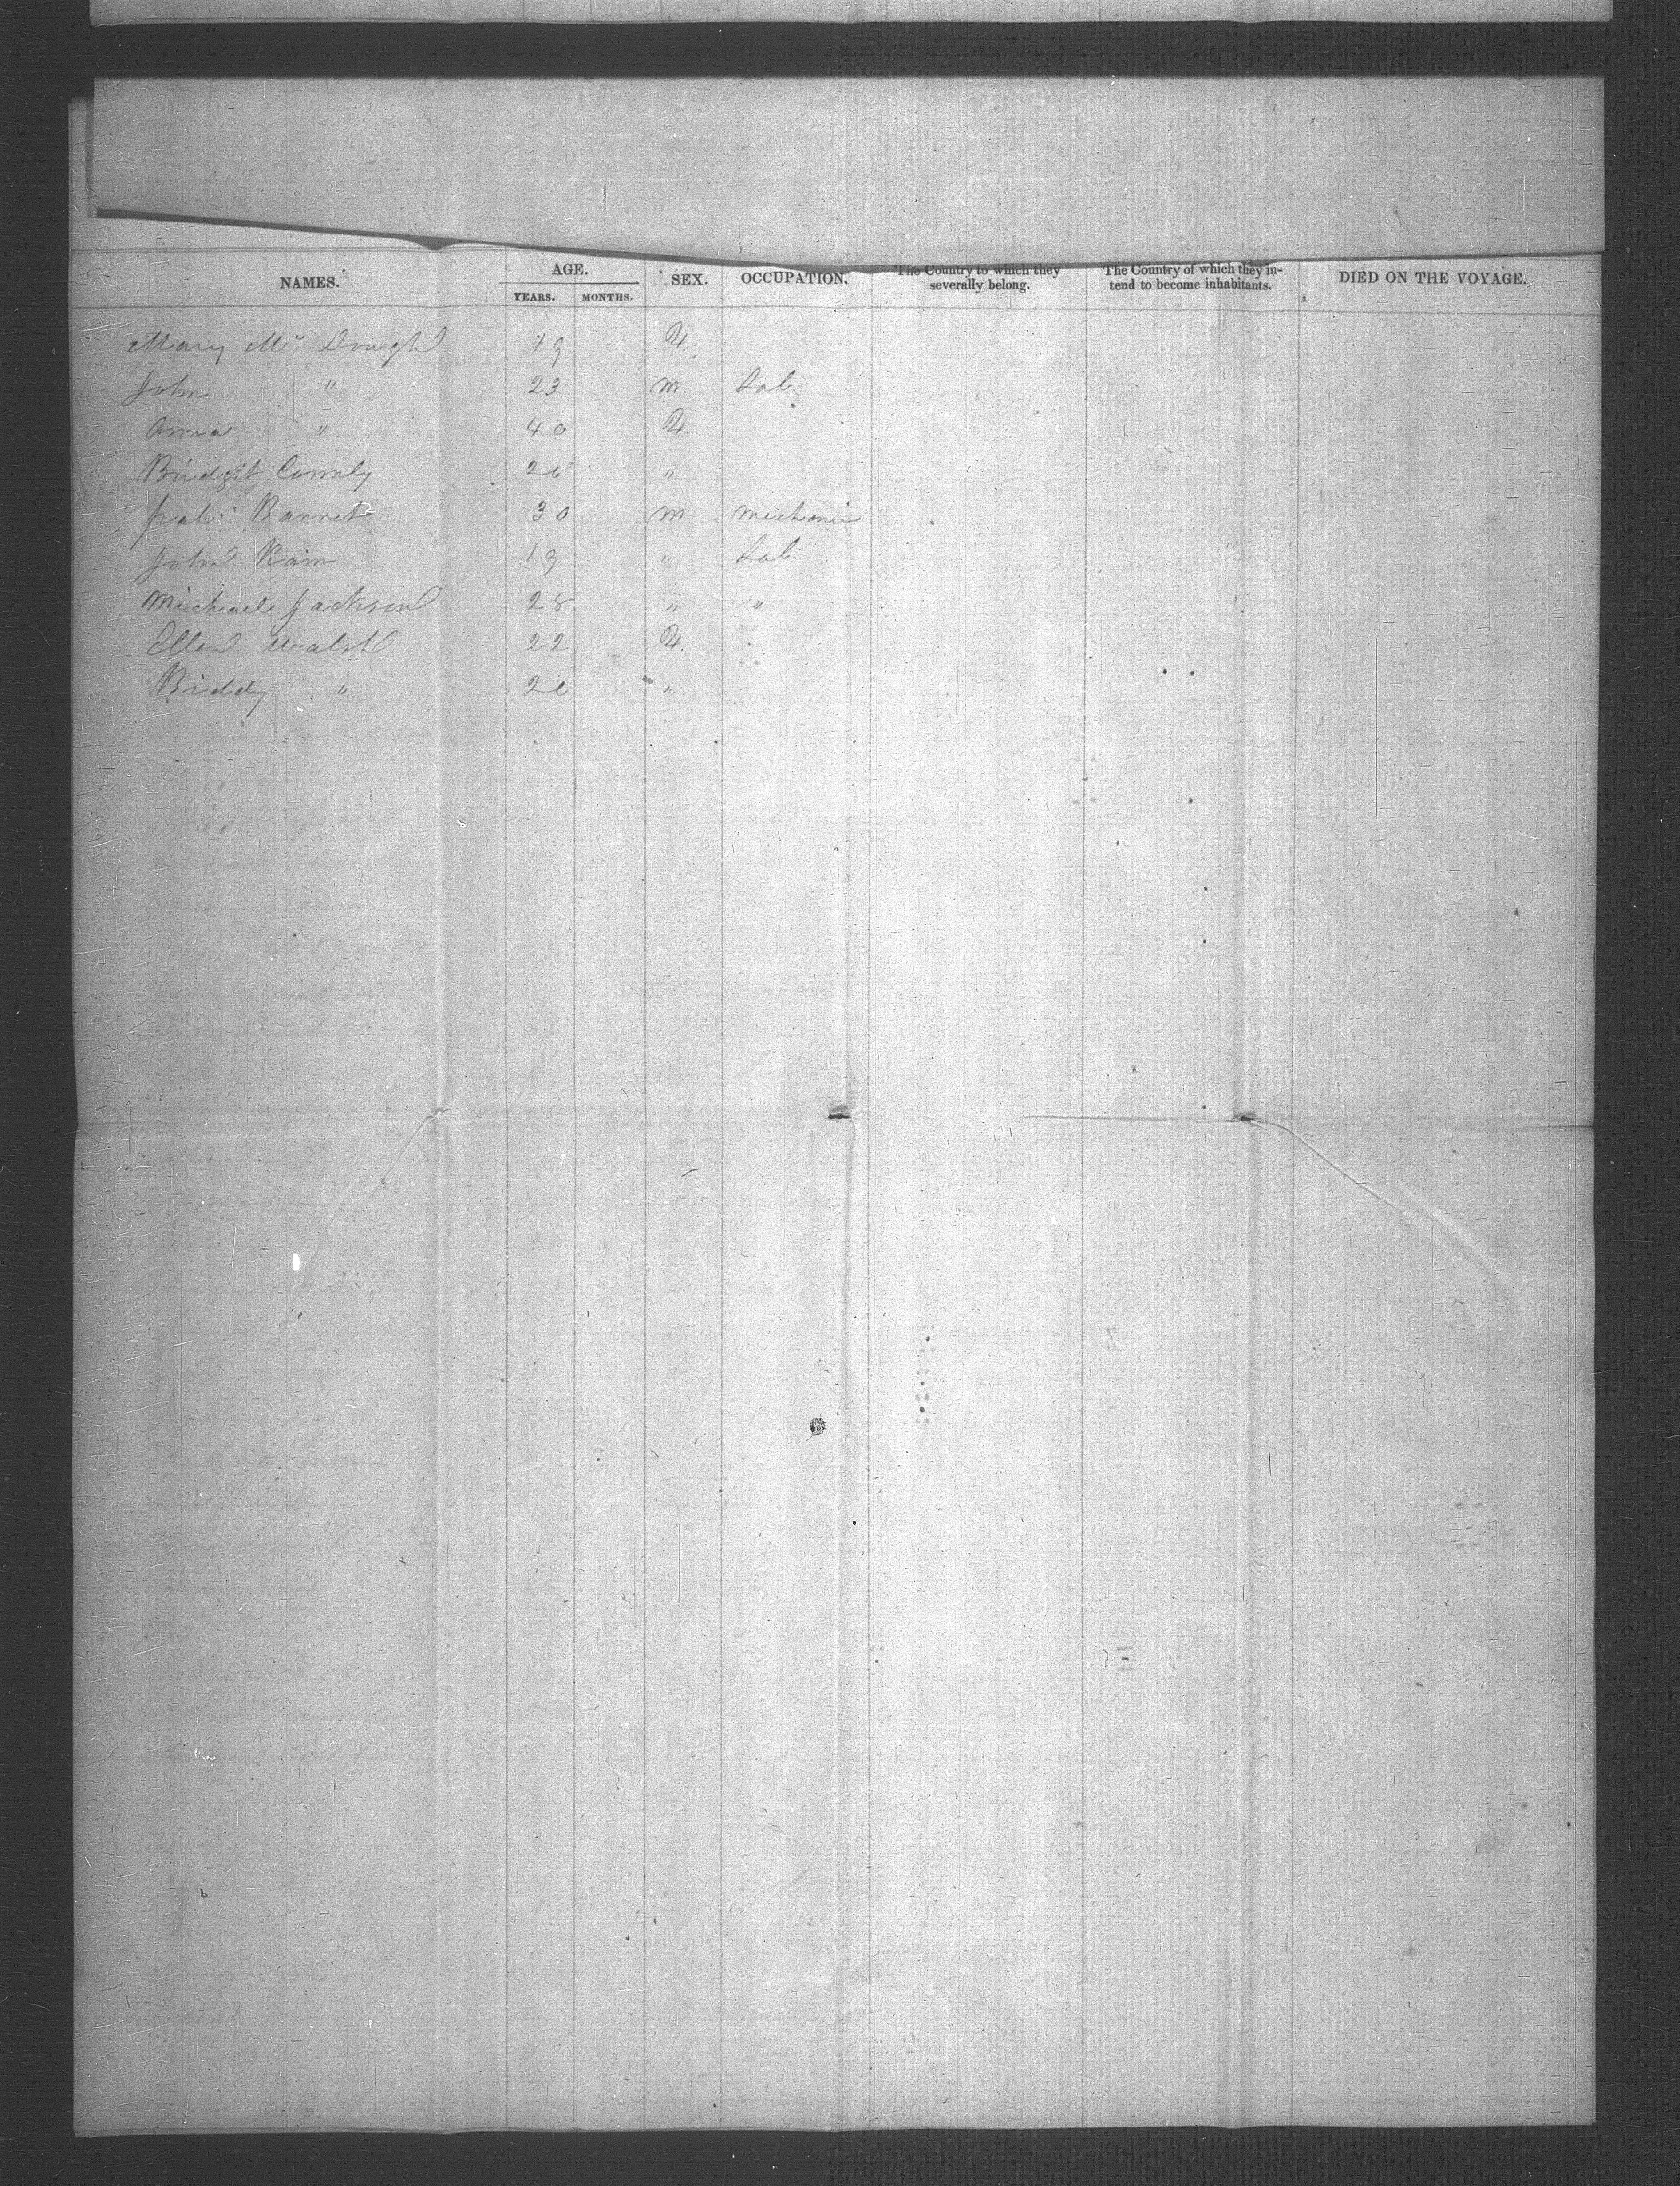 NAMES. AGE. SEX. OCCUPATION. The Country to which they severally belong. The Country of which they intend to become inhabitants. DIED ON THE VOYAGE.
YEARS. MONTHS.
Mary Mc Dough 19 F.
John " 23 m. Lab.
Anna " 40 F.
Bridget Connly 20 "
Barret 30 m mechanic
John Kain 19 " Lab.
Michael Jackson 28 " "
Ellen Walsh 22 F.
Biddy " 20 "